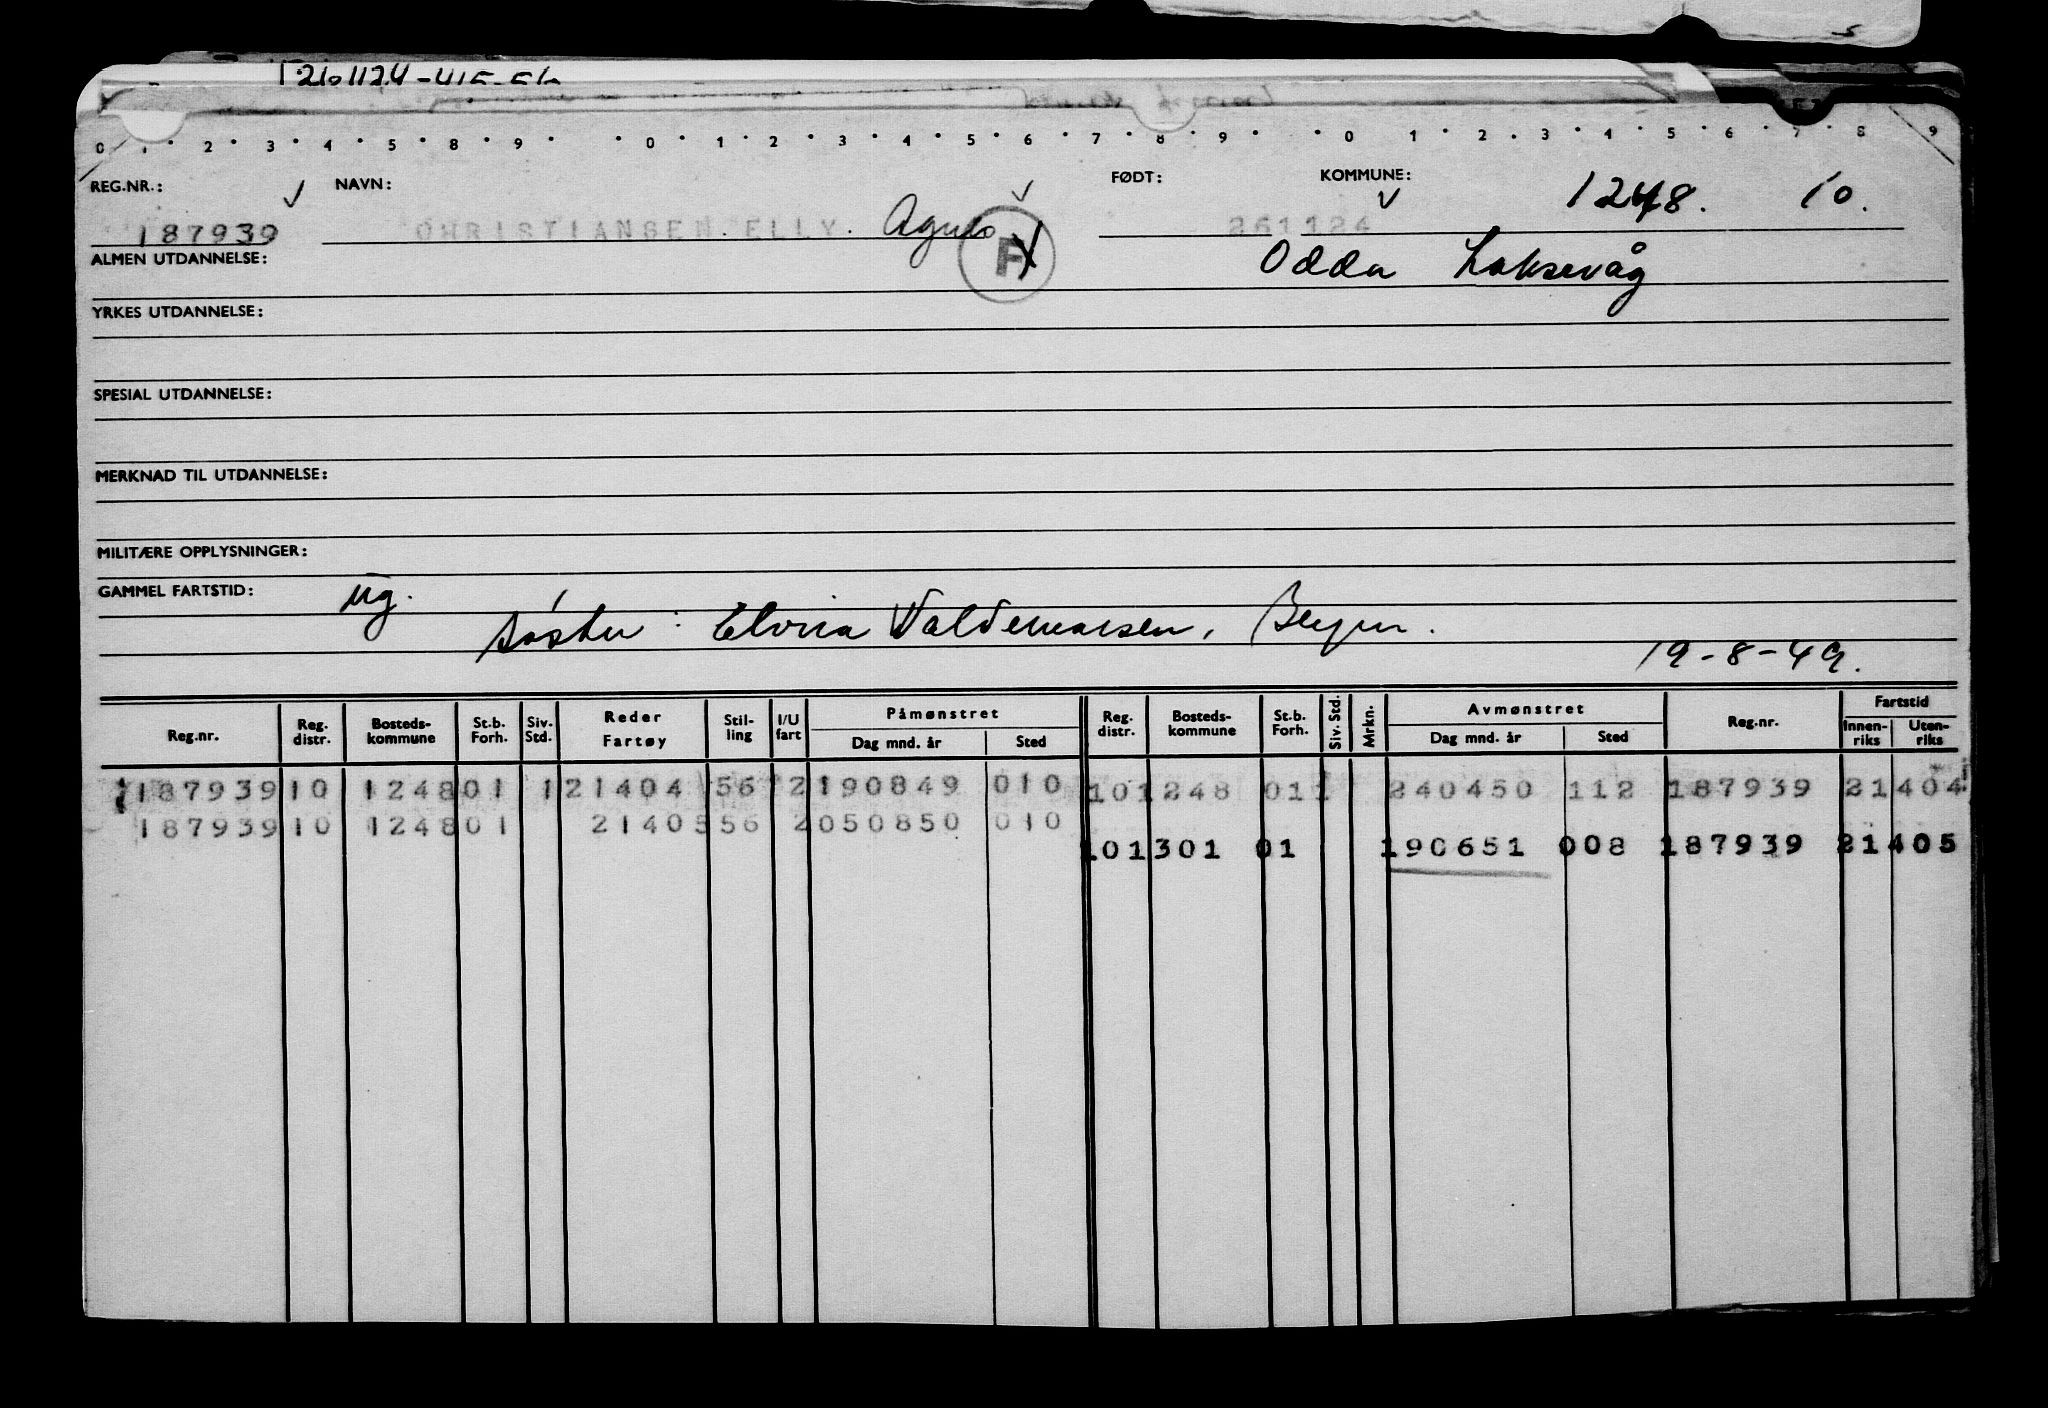 5
261124-415-56
0 1 2 3 4 5 8 9 0 1 2 3 4 5 6 7 8 9 0 1 2 3 4 5 6 7 8 9
REG.NR.: NAVN: FØDT: KOMMUNE: 1248. 10.
187939 CHRISTIANSEN ELLY. 261124
F
ALMEN UTDANNELSE: Odda Laksevåg
YRKES UTDANNELSE:
SPESIAL UTDANNELSE:
MERKNAD TIL UTDANNELSE:
MILITÆRE OPPLYSNINGER:
GAMMEL FARTSTID: ug.
søster: Elvira Valdemarsen, Bergen.
19-8-49.
Reg.nr. Reg. distr. Bosteds-kommune St.b. Forh. Siv. Std. Reder Fartøy Stil-ling I/U fart Påmønstret Dag mnd. år Sted Reg. distr. Bosteds-kommune St.b. Forh. Siv. Std. Mrkn. Avmønstret Dag mnd. år Sted Reg.nr. Fartstid Innen-riks Uten-riks
187939 10 1248 01 1 21404 56 2 190849 010 10 1248 01 1 240450 112 187939 21404
187939 10 1248 01 21405 56 2 050850 010
10 1301 01 190651 008 187939 21405